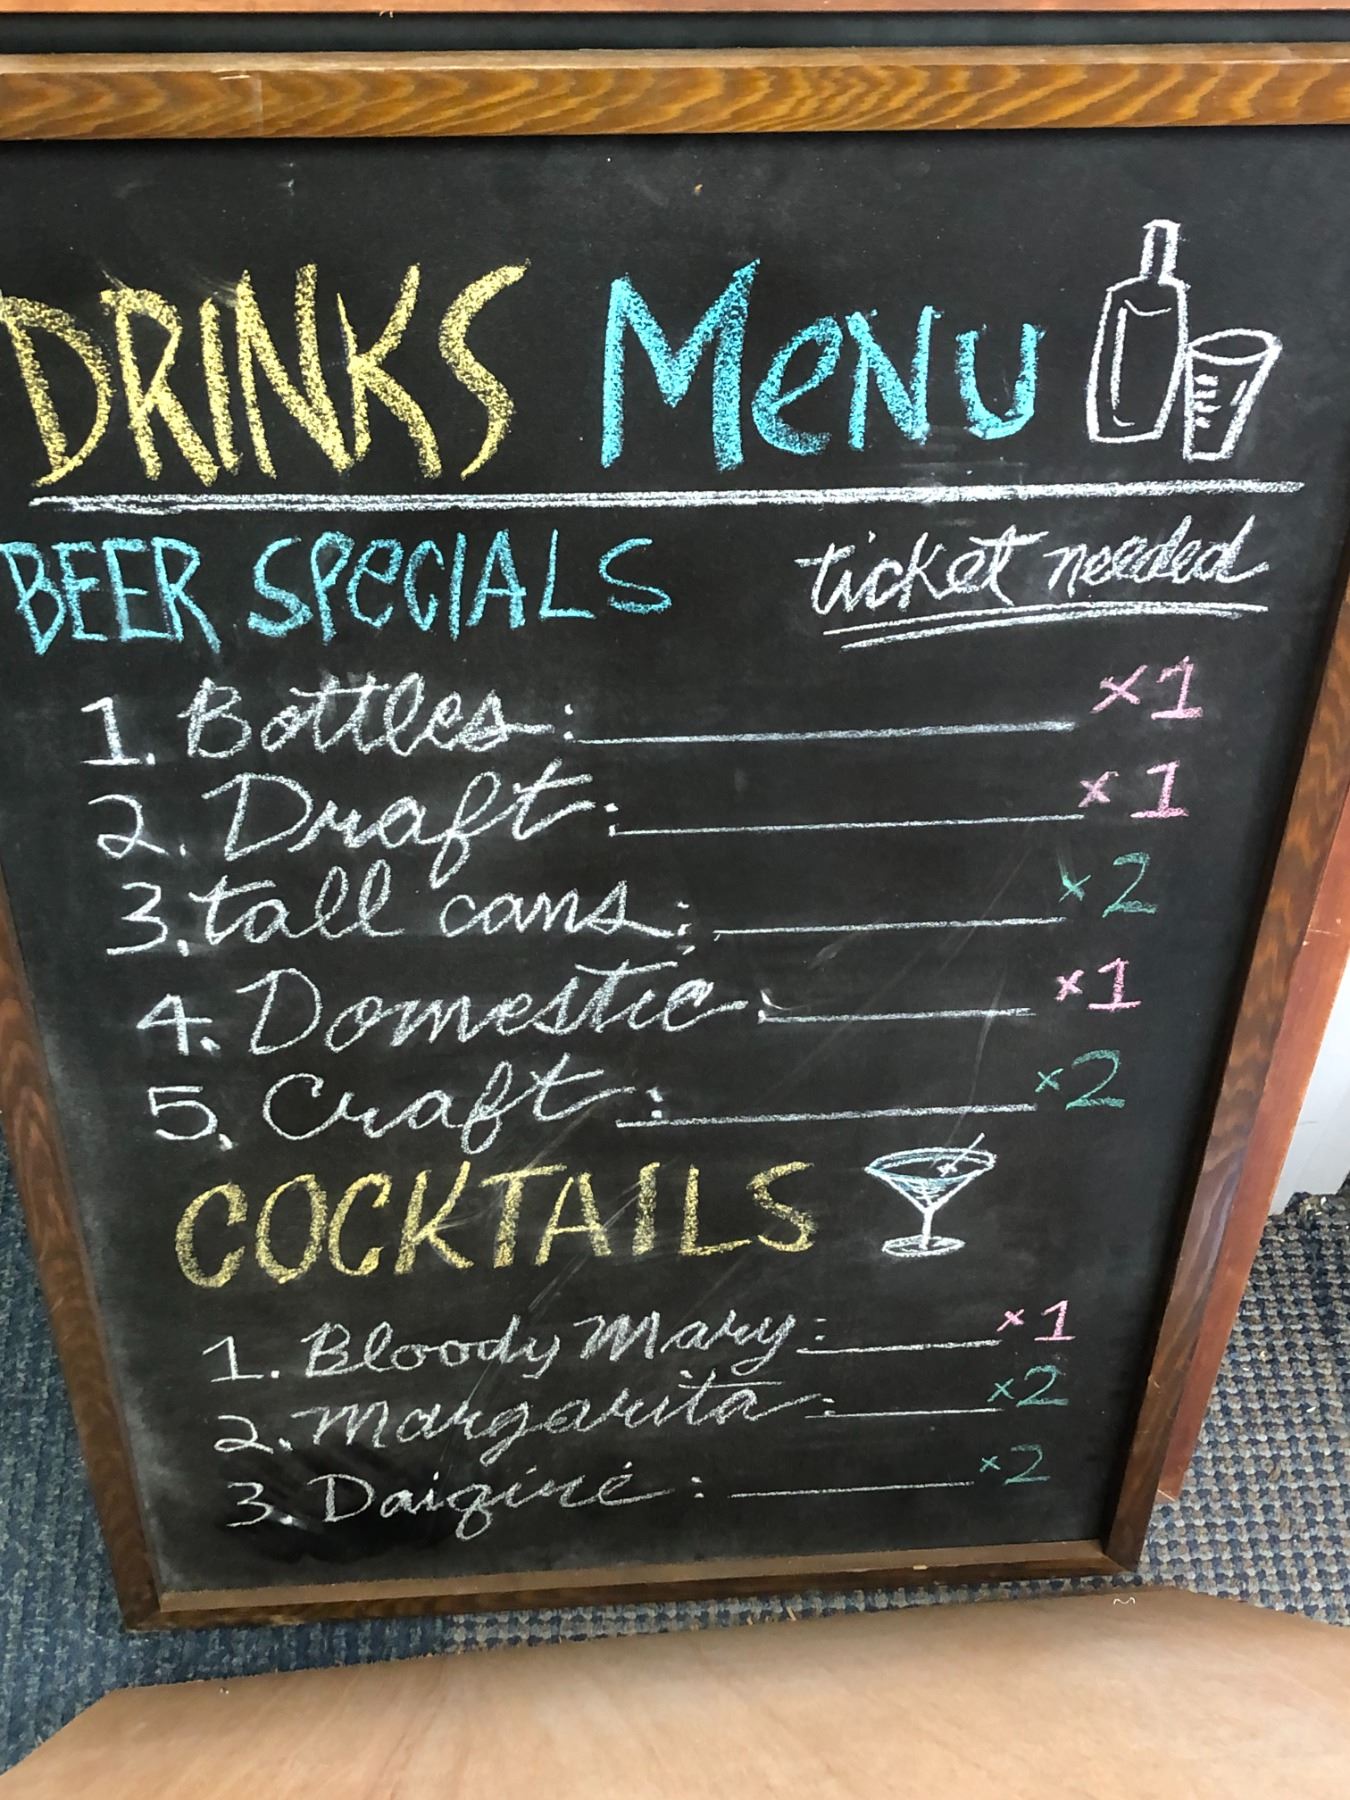 DRINKS MeNU
BEER SPeCIALS ticket needed
1. Bottles: x1
2. Draft: x1
3. tall cans: x2
4. Domestic: x1
5. Craft: x2
COCKTAILS
1. Bloody Mary: x1
2. Margarita: x2
3. Daiqiré: x2